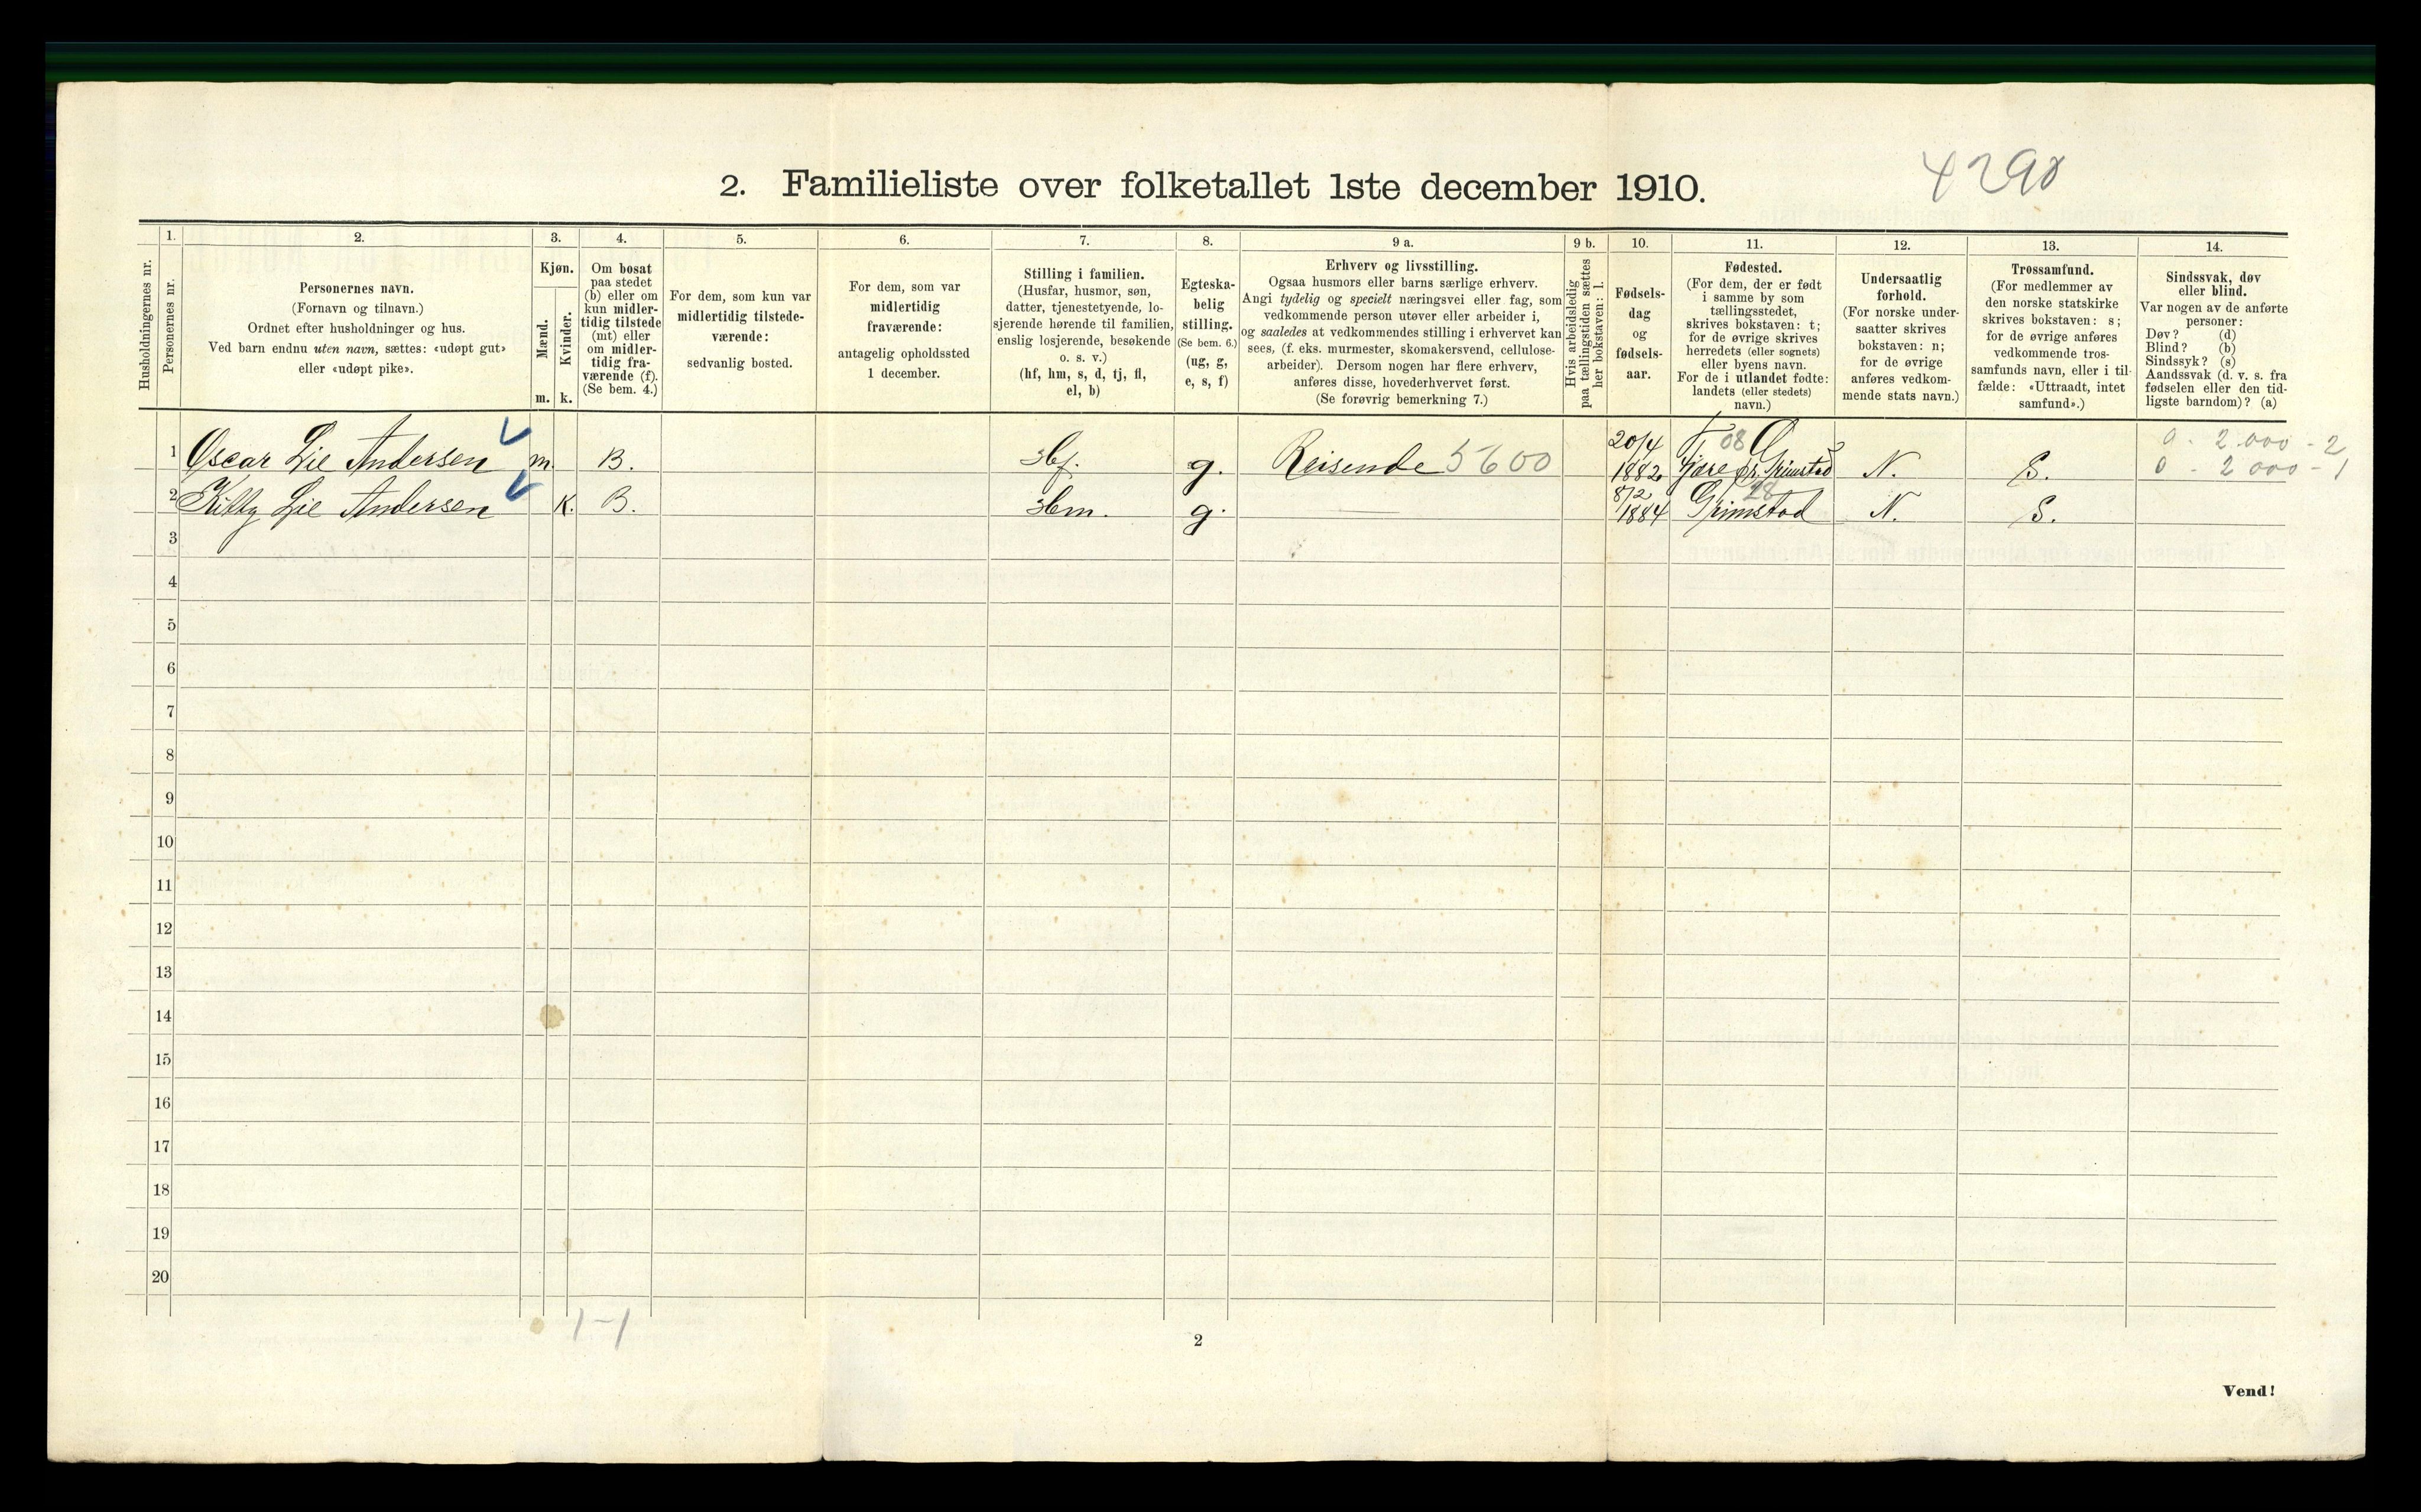 4290
2. Familieliste over folketallet 1ste december 1910.
Husholdningernes nr.
1.
Personernes nr.
2.
Personernes navn.
(Fornavn og tilnavn.)
Ordnet efter husholdninger og hus.
Ved barn endnu uten navn, sættes: «udøpt gut»
eller «udøpt pike».
3.
Kjøn.
Mænd.
Kvinder.
m. k.
4.
Om bosat
paa stedet
(b) eller om
kun midler-
tidig tilstede
(mt) eller
om midler-
tidig fra-
værende (f).
(Se bem. 4.)
5.
For dem, som kun var
midlertidig tilstede-
værende:
sedvanlig bosted.
6.
For dem, som var
midlertidig
fraværende:
antagelig opholdssted
1 december.
7.
Stilling i familien.
(Husfar, husmor, søn,
datter, tjenestetyende, lo-
sjerende hørende til familien,
enslig losjerende, besøkende
o. s. v.)
(hf, hm, s, d, tj, fl,
el, b)
8.
Egteska-
belig
stilling.
(Se bem. 6.)
(ug, g,
e, s, f)
9 a.
Erhverv og livsstilling.
Ogsaa husmors eller barns særlige erhverv.
Angi tydelig og specielt næringsvei eller fag, som
vedkommende person utøver eller arbeider i,
og saaledes at vedkommendes stilling i erhvervet kan
sees, (f. eks. murmester, skomakersvend, cellulose-
arbeider). Dersom nogen har flere erhverv,
anføres disse, hovederhvervet først.
(Se forøvrig bemerkning 7.)
9 b.
Hvis arbeidsledig
paa tællingstiden sættes
her bokstaven: l.
10.
Fødsels-
dag
og
fødsels-
aar.
11.
Fødested.
(For dem, der er født
i samme by som
tællingsstedet,
skrives bokstaven: t;
for de øvrige skrives
herredets (eller sognets)
eller byens navn.
For de i utlandet fødte:
landets (eller stedets)
navn.)
12.
Undersaatlig
forhold.
(For norske under-
saatter skrives
bokstaven: n;
for de øvrige
anføres vedkom-
mende stats navn.)
13.
Trossamfund.
(For medlemmer av
den norske statskirke
skrives bokstaven: s;
for de øvrige anføres
vedkommende tros-
samfunds navn, eller i til-
fælde: «Uttraadt, intet
samfund».)
14.
Sindssvak, døv
eller blind.
Var nogen av de anførte
personer:
Døv? (d)
Blind? (b)
Sindssyk? (s)
Aandssvak (d. v. s. fra
fødselen eller den tid-
ligste barndom)? (a)
1 Oscar Lie Andersen m. B. Hf. g. Reisende 5600 20/4 1882 08 Fjære pr. Grimstad N. S. 0 - 2 000 - 2
0 - 2 000 - 1
2 Kitty Lie Andersen K. B. Hm. g. — 8/2 1884 28 Grimstad N. S.
3
4
5
6
7
8
9
10
11
12
13
14
15
16
17
18
19
20
1-1
2
Vend!